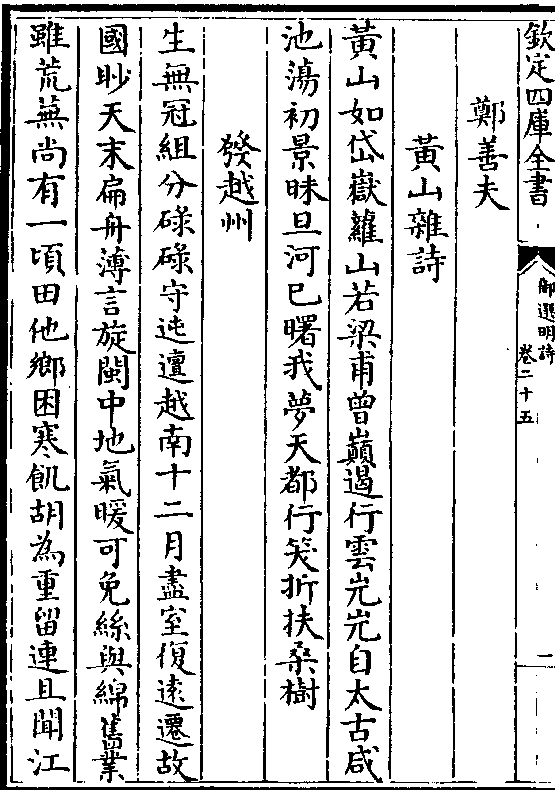 欽定四庫全書
御選明詩
卷二十五
一
鄭善夫
黃山雜詩
黃山如岱嶽蘿山若梁甫曾巔遏行雲岏岏自太古咸
池蕩初景昧旦河已曙我夢天都行笑折扶桑樹
發越州
生無冠組分碌碌守迍邅越南十二月盡室復遠遷故
國眇天末扁舟薄言旋閩中地氣暖可免絲與綿舊業
雖荒蕪尚有一頃田他鄉困寒飢胡為重留連且聞江